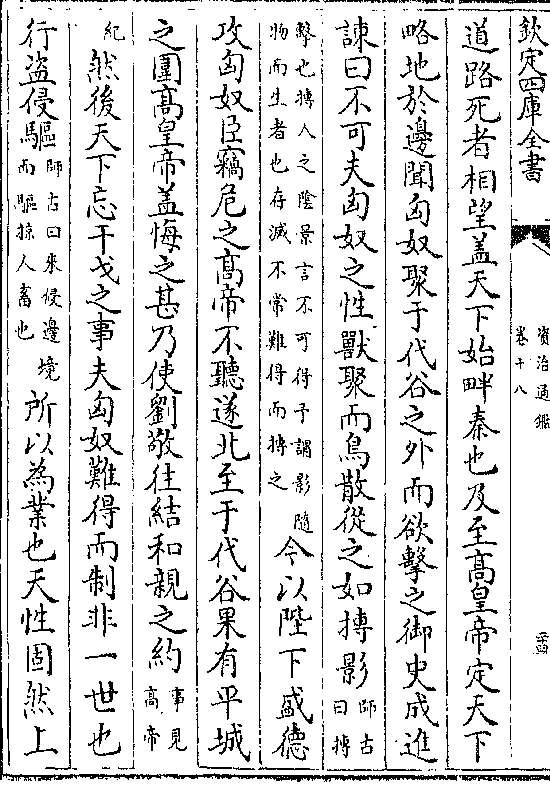 欽定四庫全書
資治通鑑
卷十八
道路死者相望蓋天下始畔秦也及至高皇帝定天下
略地於邊聞匈奴聚于代谷之外而欲擊之御史成進
諫曰不可夫匈奴之性獸聚而鳥散從之如搏影師古曰搏
擊也搏人之陰景言不可得予謂影隨物而生者也存滅不常難得而搏之今以陛下盛德
攻匈奴臣竊危之高帝不聽遂北至于代谷果有平城
之圍高皇帝蓋悔之甚乃使劉敬往結和親之約事見高帝
紀然後天下忘干戈之事夫匈奴難得而制非一世也
行盜侵驅師古曰來侵邊境而驅掠人畜也所以為業也天性固然上